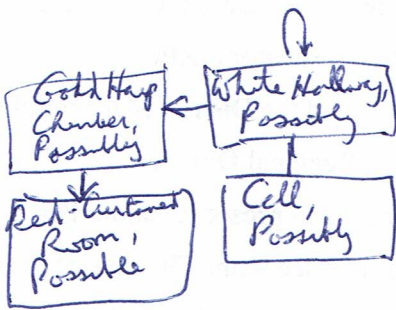 Gold Harp
Chamber,
Possibly
White Hallway,
Possibly
Red-Curtained
Room,
Possible
Cell,
Possibly